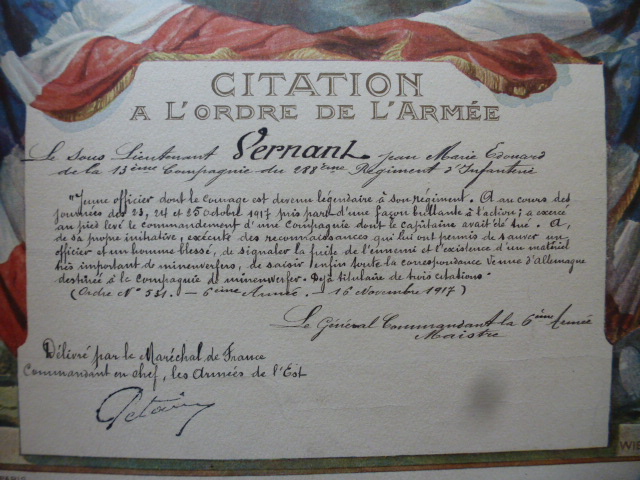 CITATION
A L'ORDRE DE L'ARMÉE
Le Sous Lieutenant Vernant Jean Marie Edouard
de la 15ème Compagnie du 288ème Régiment d'Infanterie
"Jeune officier dont le courage est devenu légendaire à son régiment. A au cours des
journées des 23, 24 et 25 Octobre 1917 pris part d'une façon brillante à l'action; a exercé
au pied levé le commandement d'une Compagnie dont le Capitaine avait été tué. A,
de sa propre initiative, exécuté des reconnaissances qui lui ont permis de sauver un
officier et un homme blessé, de signaler la fuite de l'ennemi et l'existence d'un matériel
très important de minenwerfers, de saisir enfin toute la correspondance venue d'Allemagne
destinée à la Compagnie de minenwerfer. Déjà titulaire de trois citations."
(Ordre N° 531. - 6ème Armée. - 16 Novembre 1917)
Le Général Commandant la 6ème Armée
Maistre
Délivré par le Maréchal de France
Commandant en chef, les Armées de l'Est
Petain